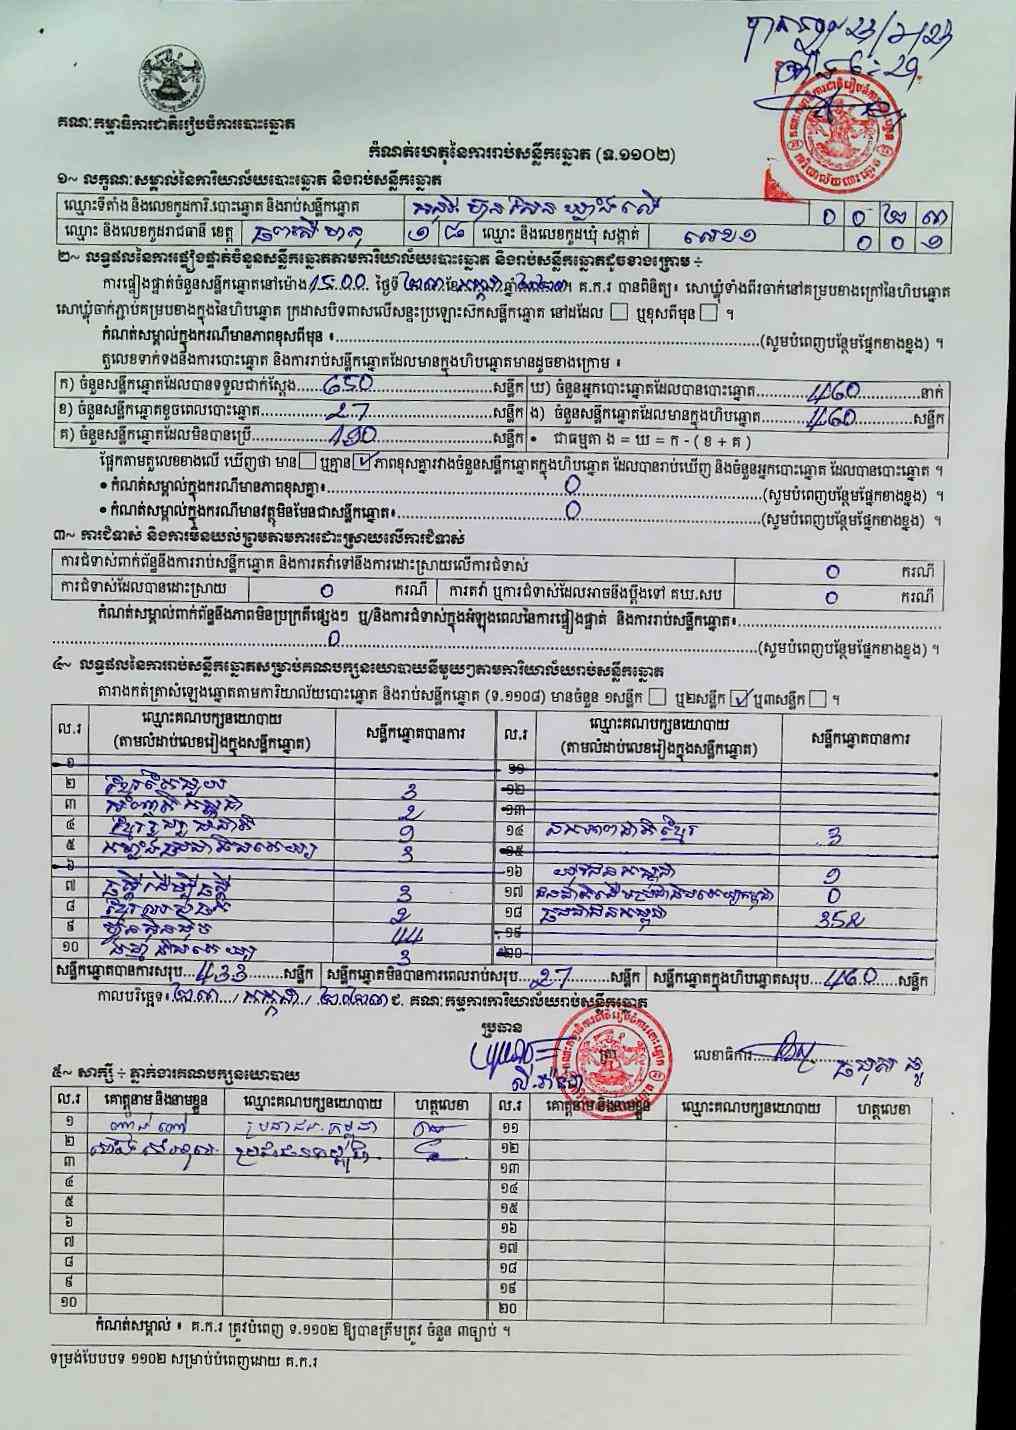 គណៈកម្មាធិការជាតិរៀបចំការបោះឆ្នោត
កំណត់ហេតុនៃការរាប់សន្លឹកឆ្នោត (ទ.១១០២)
១~ លក្ខណៈសម្គាល់នៃការិយាល័យបោះឆ្នោត និងរាប់សន្លឹកឆ្នោត
ឈ្មោះទីតាំង និងលេខកូដការិ.បោះឆ្នោត និងរាប់សន្លឹកឆ្នោត ០ ០ ២ ៣
ឈ្មោះ និងលេខកូដរាជធានី ខេត្ត ព្រះសីហនុ ១ ៨ ឈ្មោះ និងលេខកូដឃុំ សង្កាត់ លេខ១ ០ ០ ១
២~ លទ្ធផលនៃការផ្ទៀងផ្ទាត់ចំនួនសន្លឹកឆ្នោតតាមការិយាល័យបោះឆ្នោត និងរាប់សន្លឹកឆ្នោតដូចខាងក្រោម ÷
ការផ្ទៀងផ្ទាត់ចំនួនសន្លឹកឆ្នោតនៅម៉ោង 15:00 ថ្ងៃទី ២៣ ខែ កក្កដា ឆ្នាំ ២០២៣។ គ.ក.រ បានពិនិត្យ៖ សោឃ្លុំទាំងពីរចាក់នៅគម្របខាងក្រៅនៃហិបឆ្នោត
សោឃ្លុំចាក់ភ្ជាប់គម្របខាងក្នុងនៃហិបឆ្នោត ក្រដាសបិទពាសលើសន្ទះប្រឡោះស៊កសន្លឹកឆ្នោត នៅដដែល ☐ ឬខុសពីមុន ☐ ។
កំណត់សម្គាល់ក្នុងករណីមានភាពខុសពីមុន ៖ (សូមបំពេញបន្ថែមផ្នែកខាងខ្នង) ។
តួលេខទាក់ទងនឹងការបោះឆ្នោត និងការរាប់សន្លឹកឆ្នោតដែលមានក្នុងហិបឆ្នោតមានដូចខាងក្រោម ៖
ក) ចំនួនសន្លឹកឆ្នោតដែលបានទទួលជាក់ស្តែង 650 សន្លឹក ឃ) ចំនួនអ្នកបោះឆ្នោតដែលបានបោះឆ្នោត 460 នាក់
ខ) ចំនួនសន្លឹកឆ្នោតខូចពេលបោះឆ្នោត 27 សន្លឹក ង) ចំនួនសន្លឹកឆ្នោតដែលមានក្នុងហិបឆ្នោត 460 សន្លឹក
គ) ចំនួនសន្លឹកឆ្នោតដែលមិនបានប្រើ 190 សន្លឹក • ជាធម្មតា ង = ឃ = ក - ( ខ + គ )
ផ្អែកតាមតួលេខខាងលើ ឃើញថា មាន ☐ ឬគ្មាន ☑ ភាពខុសគ្នារវាងចំនួនសន្លឹកឆ្នោតក្នុងហិបឆ្នោត ដែលបានរាប់ឃើញ និងចំនួនអ្នកបោះឆ្នោត ដែលបានបោះឆ្នោត ។
• កំណត់សម្គាល់ក្នុងករណីមានភាពខុសគ្នា៖ 0 (សូមបំពេញបន្ថែមផ្នែកខាងខ្នង) ។
• កំណត់សម្គាល់ក្នុងករណីមានវត្ថុមិនមែនជាសន្លឹកឆ្នោត៖ 0 (សូមបំពេញបន្ថែមផ្នែកខាងខ្នង) ។
៣~ ការជំទាស់ និងការមិនយល់ព្រមតាមការដោះស្រាយលើការជំទាស់
ការជំទាស់ពាក់ព័ន្ធនឹងការរាប់សន្លឹកឆ្នោត និងការតវ៉ាទៅនឹងការដោះស្រាយលើការជំទាស់ 0 ករណី
ការជំទាស់ដែលបានដោះស្រាយ 0 ករណី ការតវ៉ា ឬការជំទាស់ដែលអាចនឹងប្តឹងទៅ គឃ.សប 0 ករណី
កំណត់សម្គាល់ពាក់ព័ន្ធនឹងភាពមិនប្រក្រតីផ្សេងៗ ឬ/និងការជំទាស់ក្នុងអំឡុងពេលនៃការផ្ទៀងផ្ទាត់ និងការរាប់សន្លឹកឆ្នោត៖
0 (សូមបំពេញបន្ថែមផ្នែកខាងខ្នង) ។
៤~ លទ្ធផលនៃការរាប់សន្លឹកឆ្នោតសម្រាប់គណបក្សនយោបាយនីមួយៗតាមការិយាល័យរាប់សន្លឹកឆ្នោត
តារាងកត់ត្រាសំឡេងឆ្នោតតាមការិយាល័យបោះឆ្នោត និងរាប់សន្លឹកឆ្នោត (ទ.១១០៨) មានចំនួន ១សន្លឹក ☐ ឬ២សន្លឹក ☑ ឬ៣សន្លឹក ☐ ។
ល.រ ឈ្មោះគណបក្សនយោបាយ (តាមលំដាប់លេខរៀងក្នុងសន្លឹកឆ្នោត) សន្លឹកឆ្នោតបានការ ល.រ ឈ្មោះគណបក្សនយោបាយ (តាមលំដាប់លេខរៀងក្នុងសន្លឹកឆ្នោត) សន្លឹកឆ្នោតបានការ
១ ១១
២ 3 ១២
៣ 2 ១៣
៤ 9 ១៤ 3
៥ 3 ១៥
៦ ១៦ 9
៧ 3 ១៧ 0
៨ 2 ១៨ ប្រជាជនកម្ពុជា
៩ ហ្វ៊ុនស៊ិនប៉ិច 44 ១៩
១០ 3 ២០
សន្លឹកឆ្នោតបានការសរុប 433 សន្លឹក សន្លឹកឆ្នោតមិនបានការពេលរាប់សរុប 27 សន្លឹក សន្លឹកឆ្នោតក្នុងហិបឆ្នោតសរុប 460 សន្លឹក
កាលបរិច្ឆេទ៖ ២៣ / កក្កដា / ២០២៣ ជ. គណៈកម្មការការិយាល័យរាប់សន្លឹកឆ្នោត
ប្រធាន
លេខាធិការ
៥~ សាក្សី ÷ ភ្នាក់ងារគណបក្សនយោបាយ
ល.រ គោត្តនាម និងនាមខ្លួន ឈ្មោះគណបក្សនយោបាយ ហត្ថលេខា ល.រ គោត្តនាម និងនាមខ្លួន ឈ្មោះគណបក្សនយោបាយ ហត្ថលេខា
១ ១១
២ ១២
៣ ១៣
៤ ១៤
៥ ១៥
៦ ១៦
៧ ១៧
៨ ១៨
៩ ១៩
១០ ២០
កំណត់សម្គាល់ ៖ គ.ក.រ ត្រូវបំពេញ ទ.១១០២ ឱ្យបានត្រឹមត្រូវ ចំនួន ៣ច្បាប់ ។
ទម្រង់បែបបទ ១១០២ សម្រាប់បំពេញដោយ គ.ក.រ